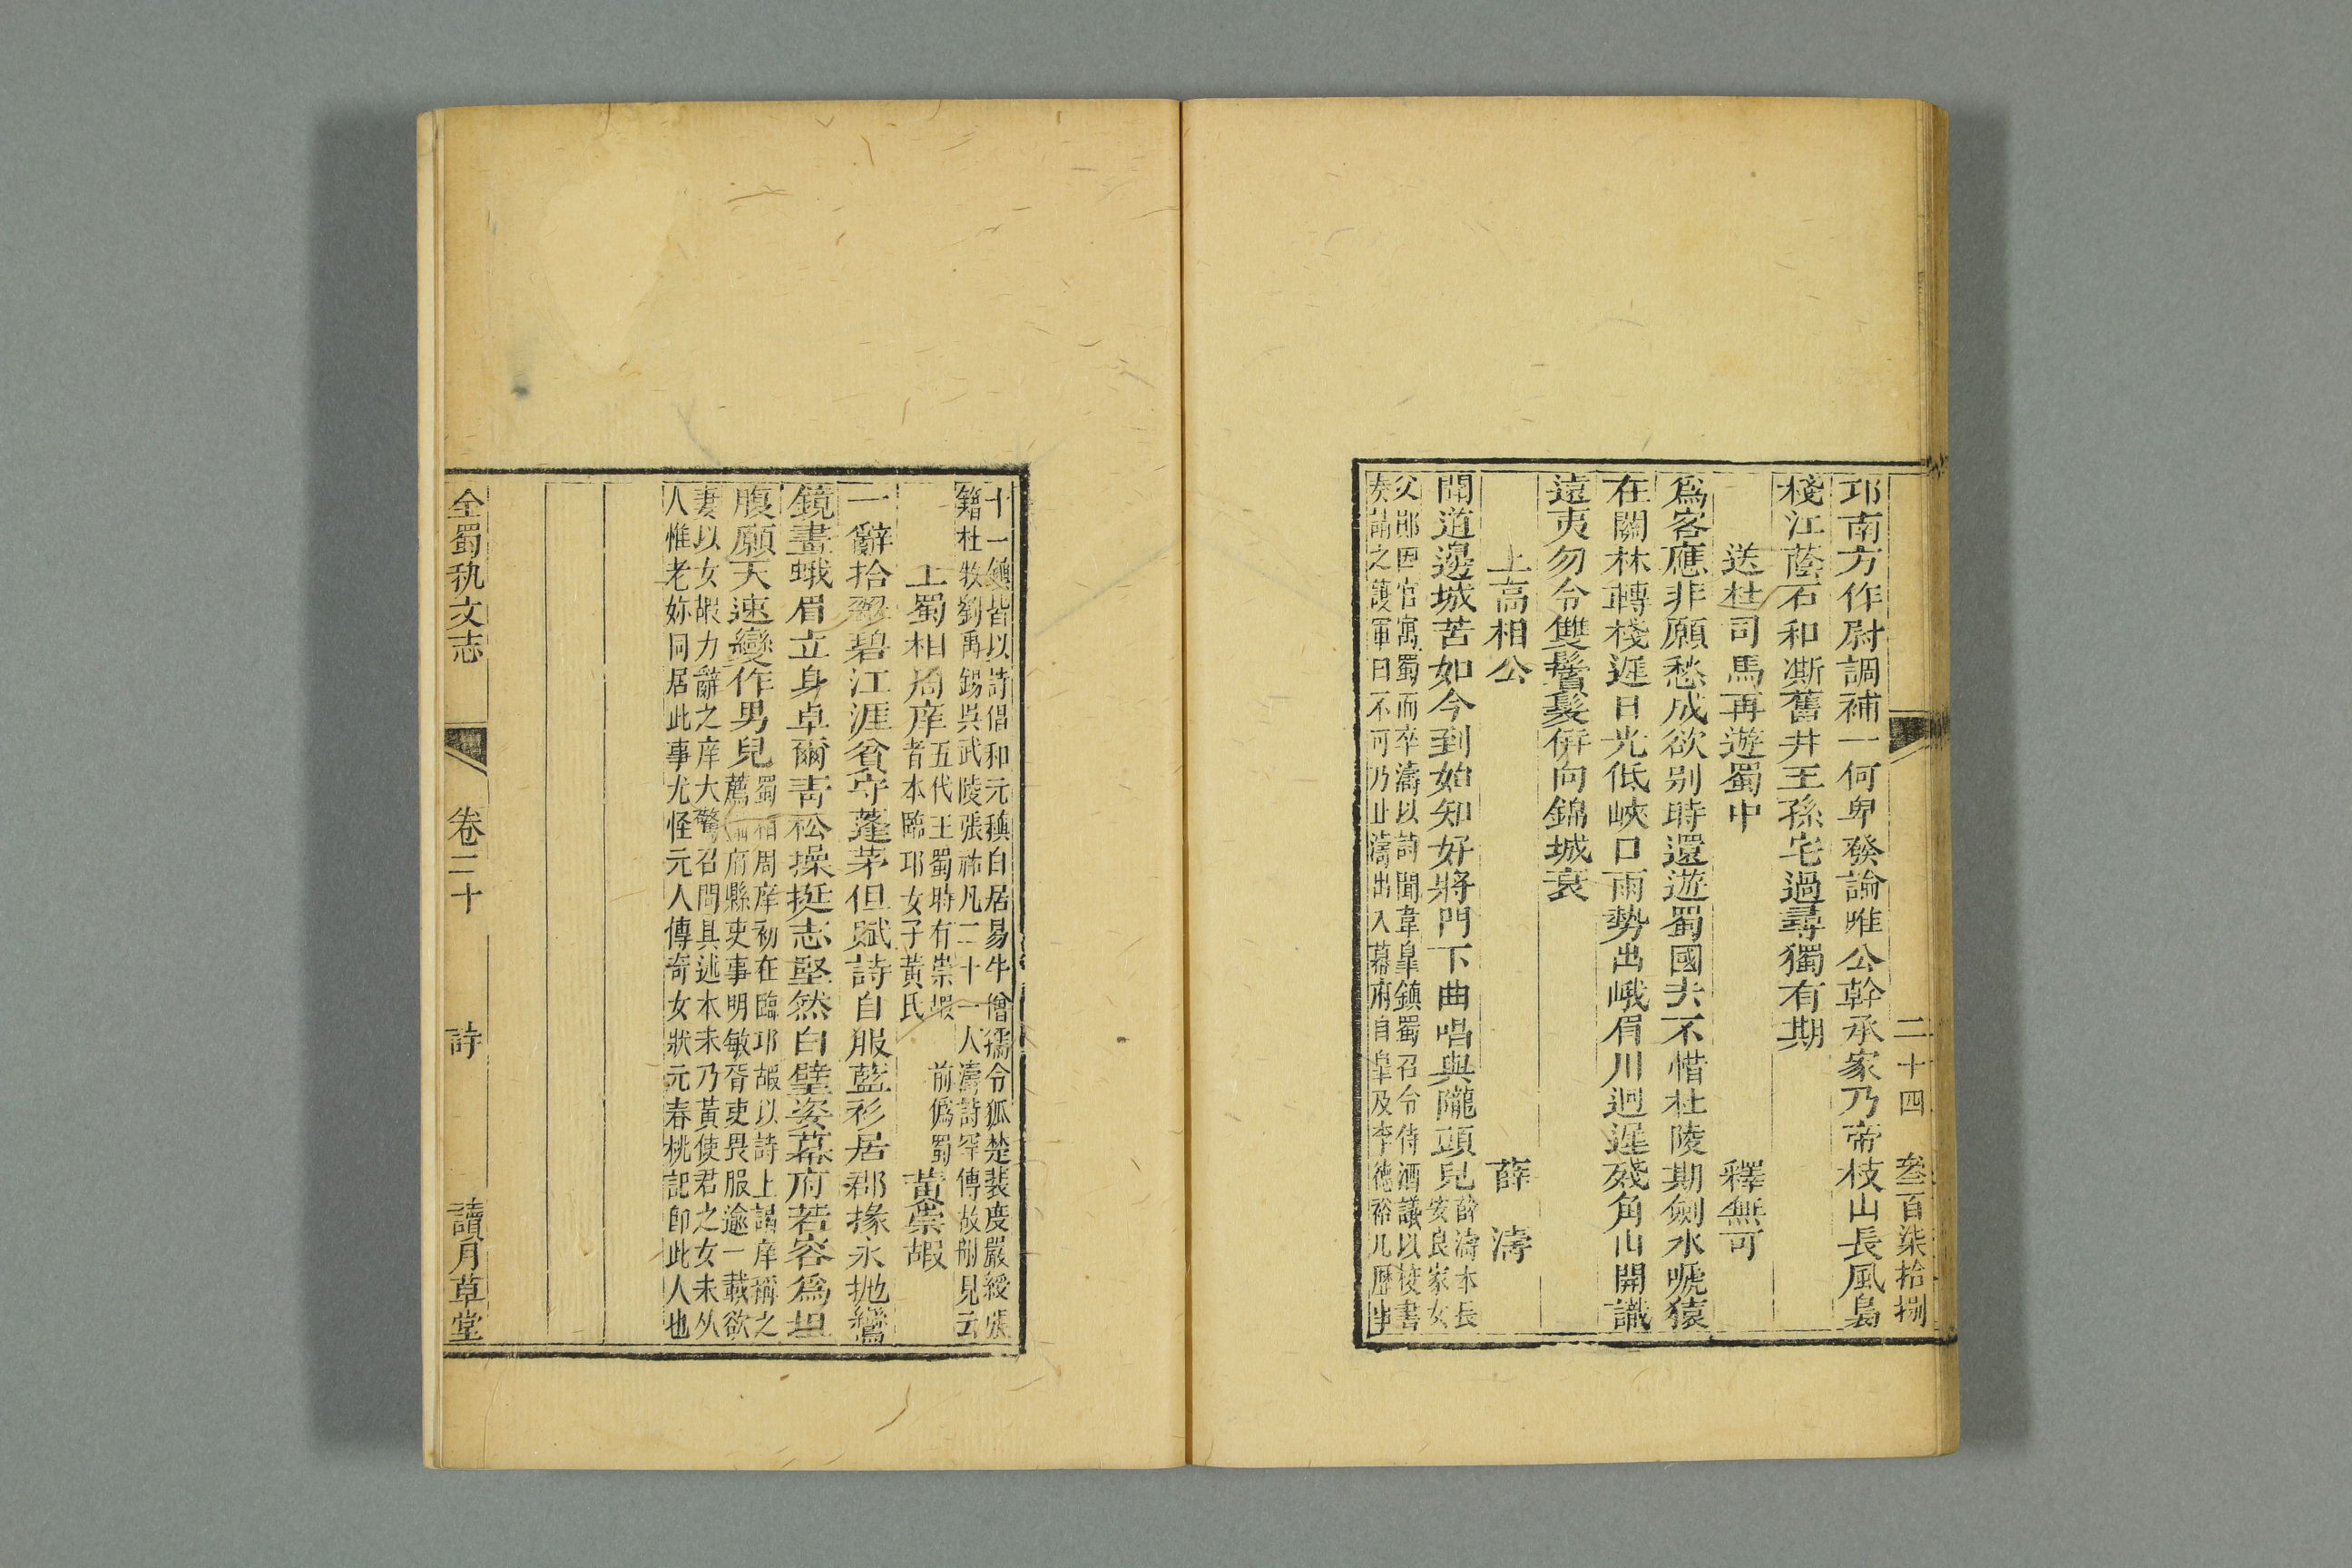 二十四　叁百柒拾捌
邛南方作尉調補一何卑發論唯公幹承家乃帝枝山長風裊
棧江蔭石和澌舊井王孫宅過尋獨有期
送杜司馬再遊蜀中　釋無可
爲客應非願愁成欲别時還遊蜀國去不惜杜陵期劍水啼猿
在關林轉棧遲日光低峽口雨勢出峨眉川迥遲殘角山開識
遠夷勿令雙鬢髮併向錦城衰
上高相公　薛濤
聞道邊城苦如今到始知好將門下曲唱與隴頭兒
薛濤本長
安良家女
父鄖因官寓蜀而卒濤以詩聞韋臯鎮蜀召令侍酒議以校書
奏請之護軍曰不可乃止濤出入幕府自臯及李德裕凡歷事
十一鎮皆以詩倡和元稹白居易牛僧孺令狐楚裴度嚴綬張
籍杜牧劉禹錫吳武陵張祐凡二十一人濤詩罕傳故刪見云
上蜀相周庠
五代王蜀時有崇嘏
者本臨邛女子黃氏
前僞蜀　黃崇嘏
一辭拾翠碧江涯貧守蓬茅但賦詩自服藍衫居郡掾永抛鸞
鏡畫蛾眉立身卓爾青松操挺志堅然白璧姿幕府若容爲坦
腹願天速變作男兒
蜀相周庠初在臨邛嘏以詩上謁庠稱之
薦攝府縣吏事明敏胥吏畏服逾一載欲
妻以女嘏力辭之庠大驚召問具述本末乃黃使君之女未从
人惟老妳同居此事尤怪元人傳奇女狀元春桃記卽此人也
全蜀秇文志　卷二十　詩　讀月草堂